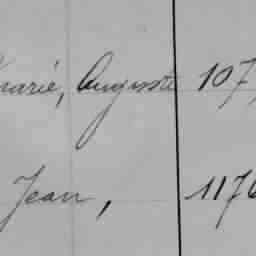 Marie, Auguste 107
Jean, 1176